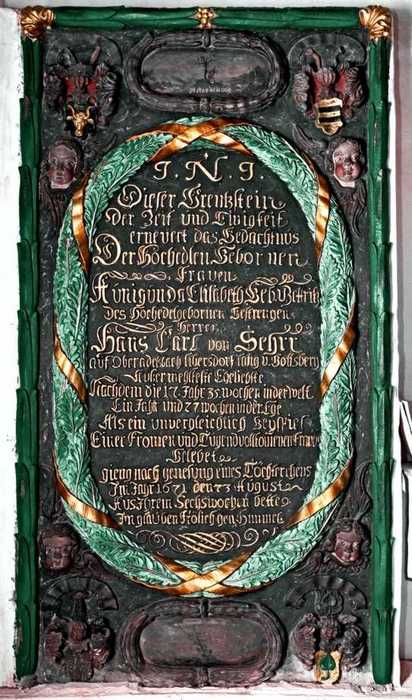 I. N. I.
Dieser Grentzstein
Der Zeit und Ewigkeit
ernevert das Gedächtnus
Der Hochedlen Gebornen
Frauen
Kunigunda Elisabeth Geb.
Des Hochedelgebornen Gestrengen
Herren
Hans Carl von Sehrr
auf
Nachdem die 17. Jahr 35. wochen in der welt
Ein Jahr und 27 wochen in der Ehe
Als ein unvergleichlich Beyspiel
Einer Fromen und
Gelebet
gieng nach genesung eines Töchterchens
Im Jahr 1671 den 23 Augusti
Aus Ihrem Sechswochen bette
Im glauben Frölich gen Himmel